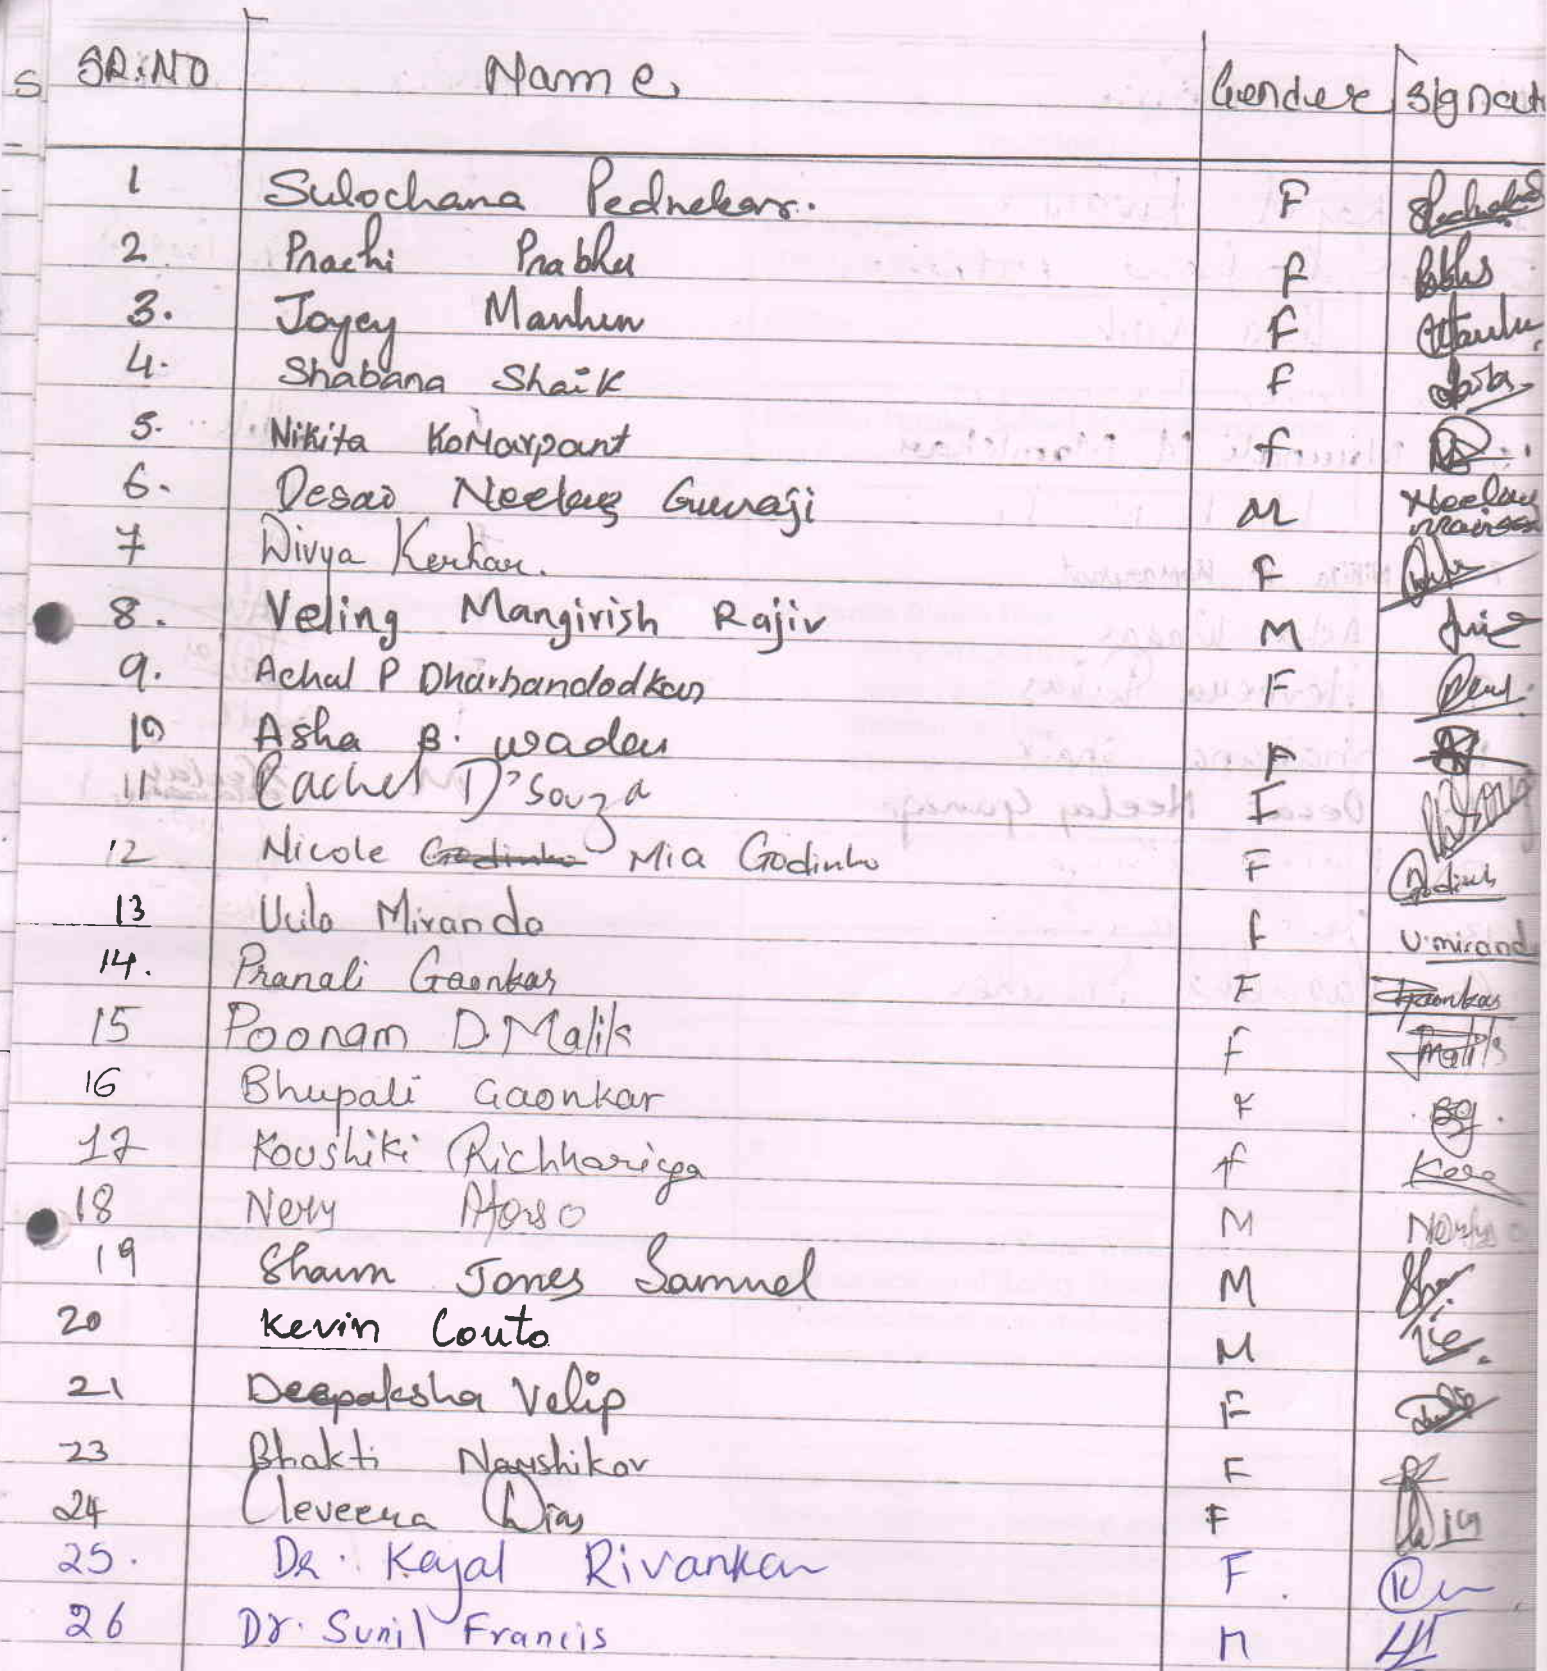 S SR.NO Name Gender Signat
1 Sulochana Pednekar. F
2 Prachi Prabhu F
3. Joyey F
4. Shabana Shaik F
5. Nikita Komarpant f
6. Desai Neelay Gunaji M Neelay
7 Divya Kerkar. F
8. Veling Mangirish Rajiv M
9. Achal P Dharbandodkar F
10 Asha B. Wadar F
11 Rachel D'Souza F
12 Nicole Godinho Mia Godinho F
13 Miranda f U.mirand
14. Pranali Gaonkar F Gaonkar
15 Poonam D. Malik F Malik
16 Bhupali Gaonkar F BG.
17 Koushiki Richhariya f
18 Nery Afonso M
19 Shawn Jones Samuel M
20 Kevin Couto M
21 Deepaksha Velip F
23 Bhakti Naushikar F
24 Cleveena Dias F
25. Dr. Kajal Rivankar F.
26 Dr. Sunil Francis M